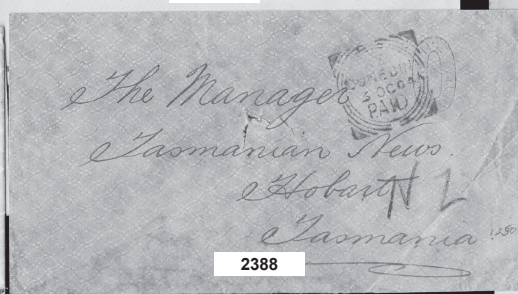 DUNEDIN
PAID
The Manager
Tasmanian News.
Hobart
N Z
Tasmania
1280
2388